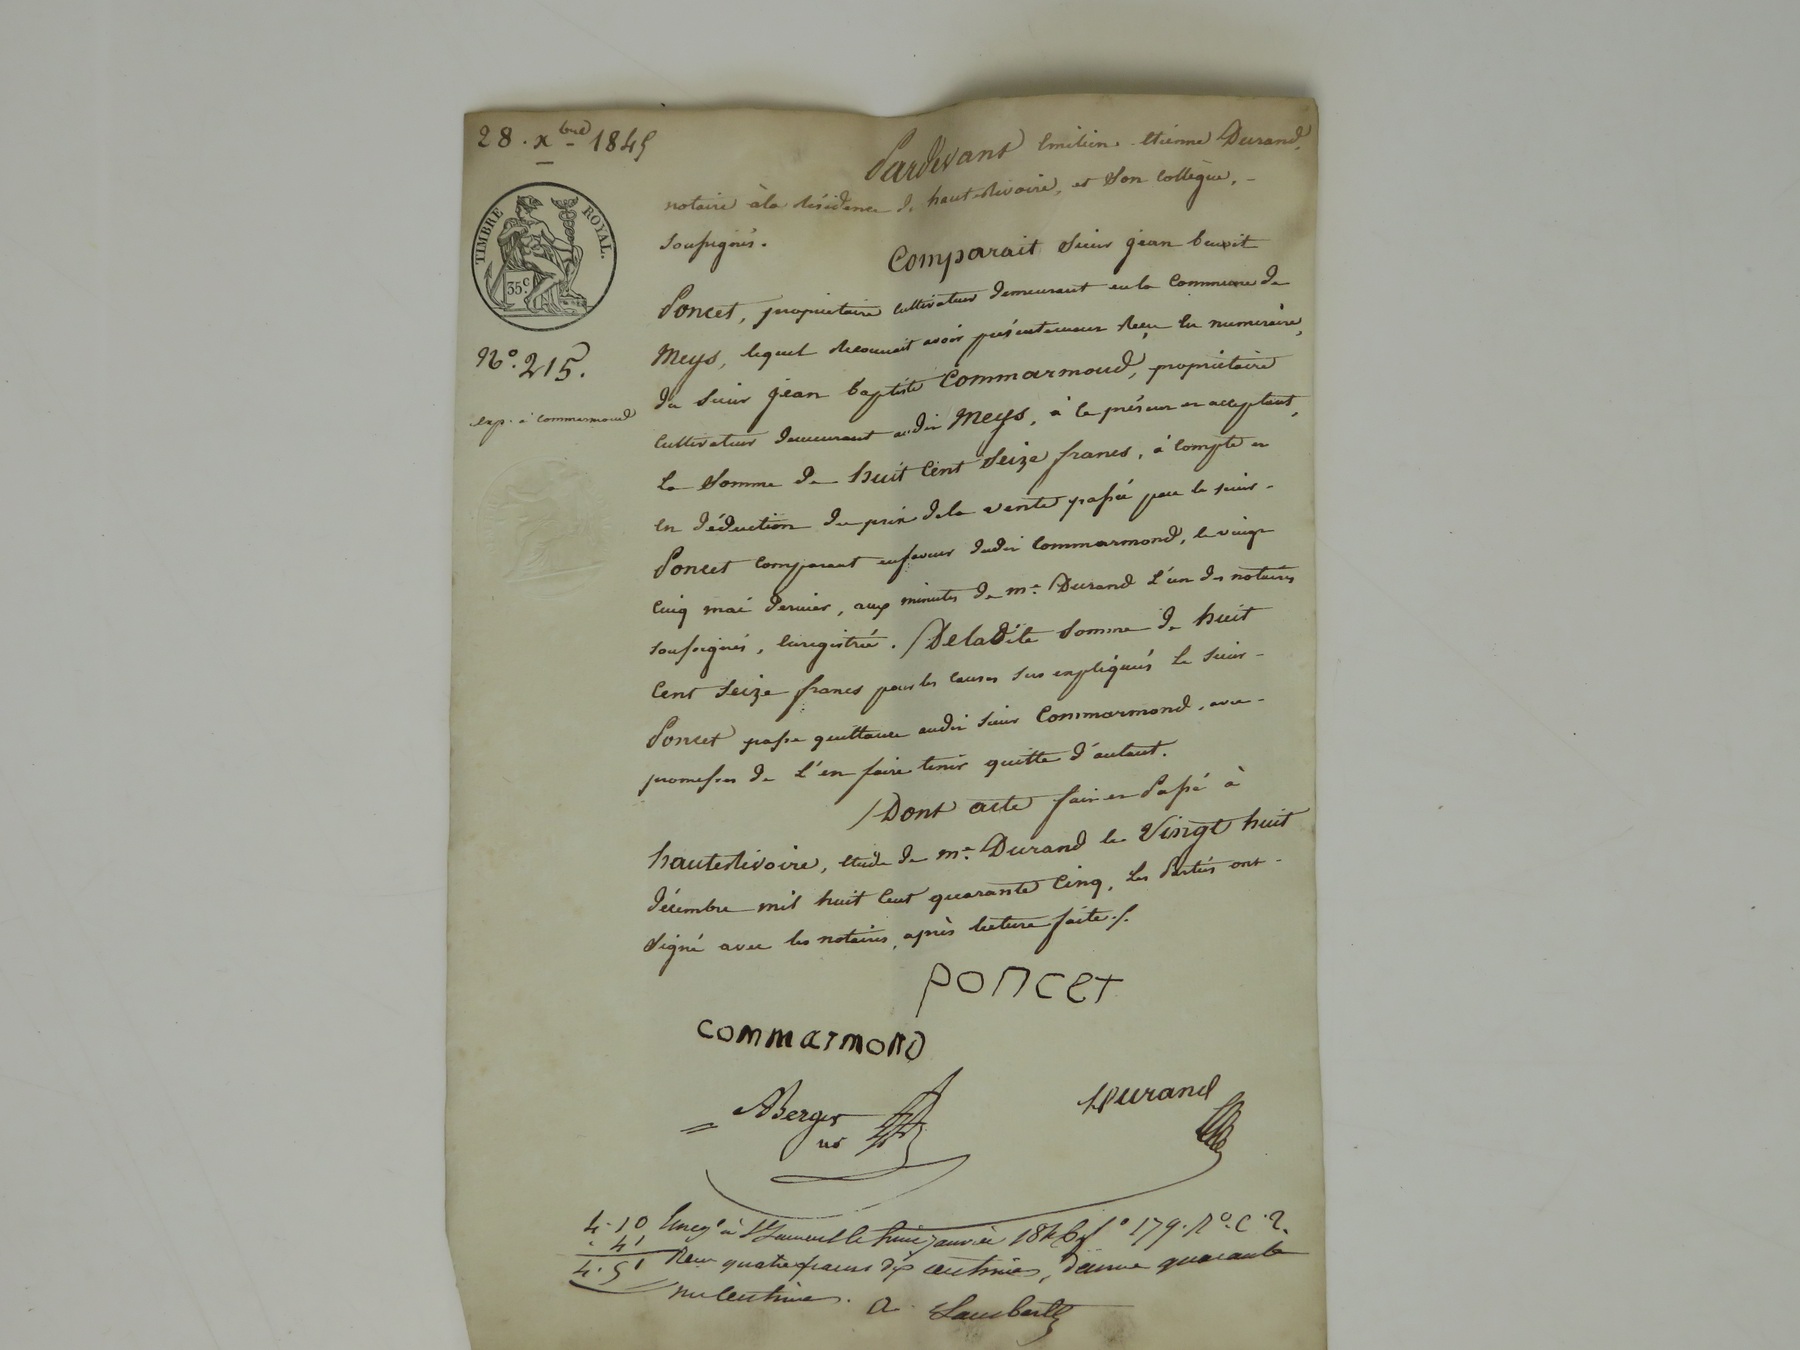 28. xbre - 1845
TIMBRE ROYAL.
35c.
No. 215.
exp. à Commarmond
Pardevant Emilien Etienne Durand,
notaire à la résidence de haute-rivoire, et Son Collègue, -
soussignés.
Comparait Sieur jean benoit
Poncet, propriétaire cultivateur demeurant en la Commune de
Meys, lequel reconnait avoir présentement Reçu en numéraire,
du Sieur jean baptiste Commarmond, propriétaire
Cultivateur demeurant audit Meys, à ce présent et acceptant,
La Somme de huit Cent Seize francs, à Compte et
en déduction du prix de la vente passée par le sieur -
Poncet Comparant en faveur dudit Commarmond, le vingt
Cinq mai dernier, aux minutes de me. Durand L'un des notaires
soussignés, Enregistrée. De la Dite Somme de huit
Cent Seize francs pour les causes sus expliquées Le Sieur -
Poncet passe quittance audit sieur Commarmond, avec -
promesses de L'en faire tenir quitte d'autant.
Dont acte fait et Passé à
hauterivoire, étude de me. Durand le Vingt huit
décembre mil huit Cent quarante Cinq, Les Parties ont -
Signé avec les notaires, après lecture faite./.
poncet
commarmond
ABerger
no
Durand
4.10
. 41
4.51
Enregé à St Laurent le huit janvier 1846 fo 179. Ro. C. 2.
Reçu quatre francs dix centimes, dixme quarante
un centimes. a. Lambert